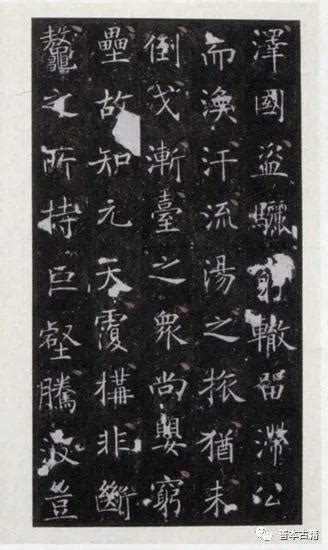 澤國盜驪轍畱滯公
而渙汗流湯之旅猶未
倒戈漸臺之衆尚嬰窮
壘故知元天覆構非斷
鼇之所持巨壑騰波豈
善本古籍